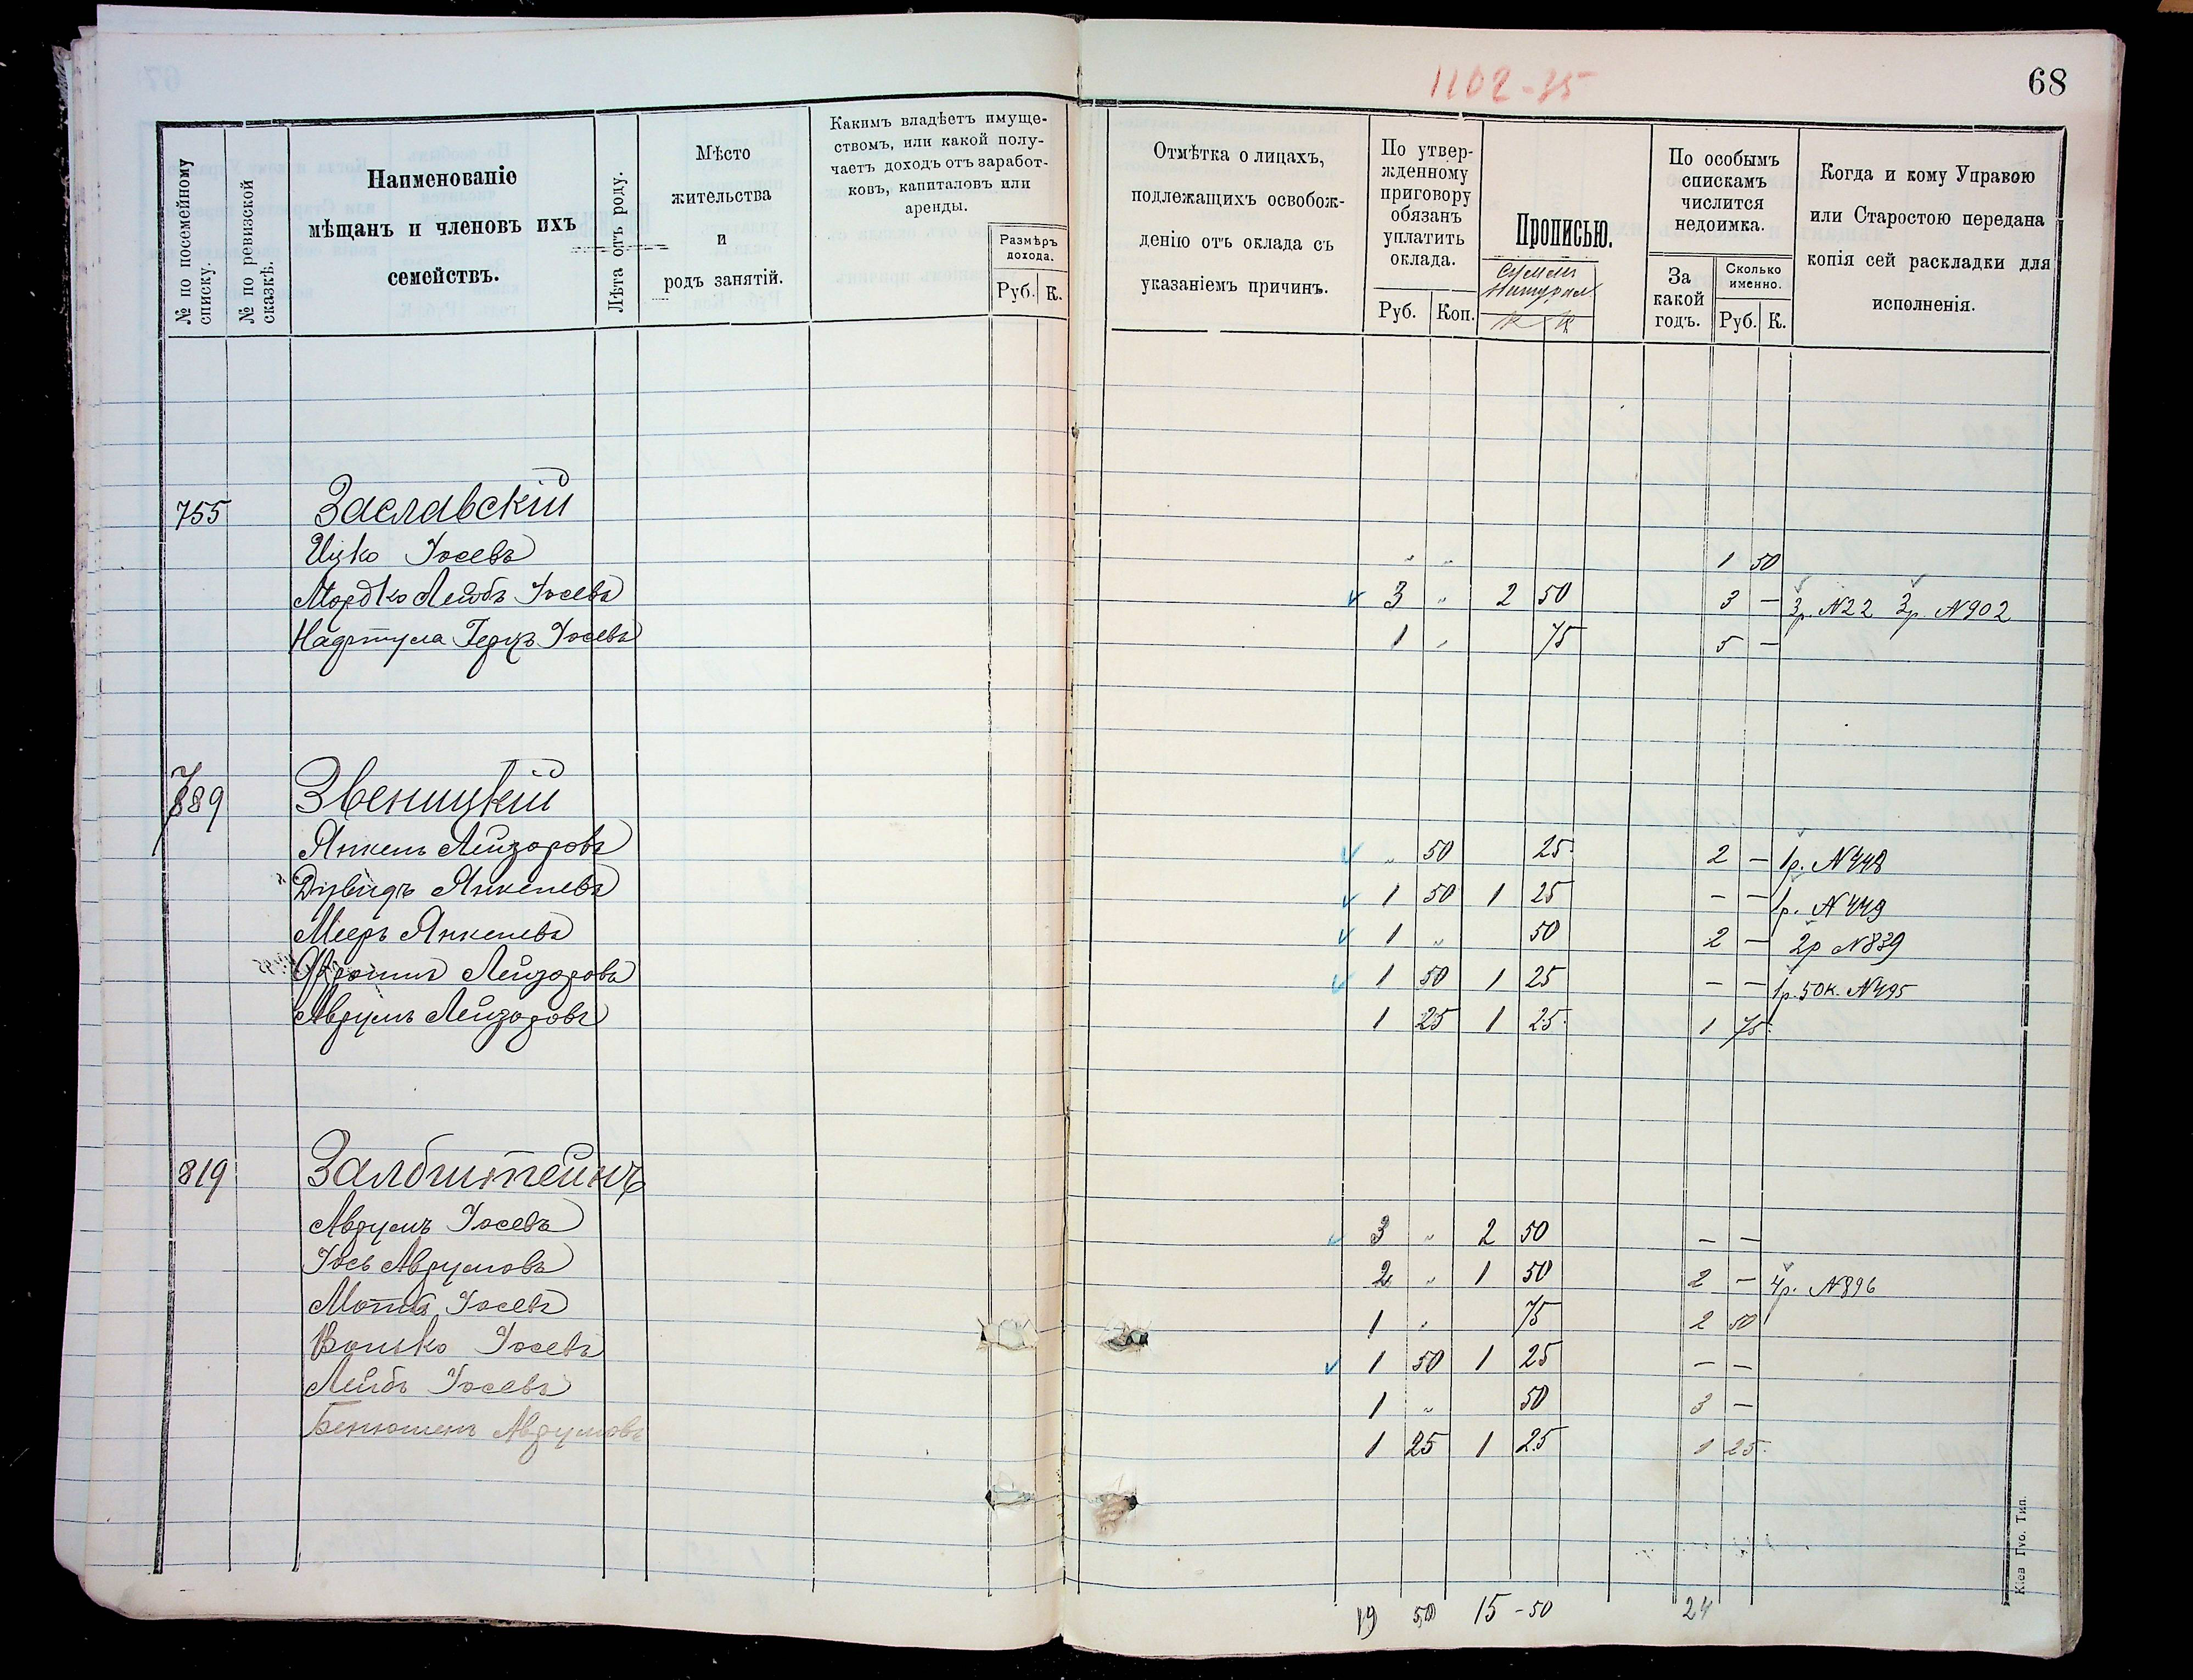 1102-35
68
№ по посемейному списку.
№ по ревизской сказкѣ.
Наименованіе
мѣщанъ и членовъ ихъ
семействъ.
Лѣта отъ роду.
Мѣсто
жительства
и
родъ занятій.
Какимъ владѣетъ имуще-
ствомъ, или какой полу-
чаетъ доходъ отъ заработ-
ковъ, капиталовъ или
аренды.
Размѣръ
дохода.
Руб. К.
Отмѣтка о лицахъ,
подлежащихъ освобож-
денію отъ оклада съ
указаніемъ причинъ.
По утвер-
жденному
приговору
обязанъ
уплатить
оклада.
Руб. Коп.
Прописью.
По особымъ
спискамъ
числится
недоимка.
За
какой
годъ.
Сколько
именно.
Руб. К.
Когда и кому Управою
или Старостою передана
копія сей раскладки для
исполненія.
755 Заславскій
Ицко Іосевъ " " 1 50
Мордко Лейбъ Іосевъ 3 " 2 50 3 — 3р. N22 3р. N902
Нафтула Герцъ Іосевъ 1 " 75 5 —
789 Звеницкій
Янкель Лейзоровъ " 50 25 2 — 1р. N448
Дувидъ Янкелевъ 1 50 1 25 — — 1р. N449
Мееръ Янкелевъ 1 " 50 2 — 2р N839
Фроимъ Лейзоровъ 1 50 1 25 — — 1р. 50к. N495
Аврумъ Лейзоровъ 1 25 1 25 1 75
819 Залбштейнъ
Аврумъ Іосевъ 3 " 2 50 — —
Іось Аврумовъ 2 " 1 50 2 — 4р. N896
Мотя Іосевъ 1 " 75 2 50
Волько Іосевъ 1 50 1 25 — —
Лейбъ Іосевъ 1 " 50 3 —
Бенюмень Аврумовъ 1 25 1 25 1 25
19 50 15-50 24
Кіев Губ. Тип.